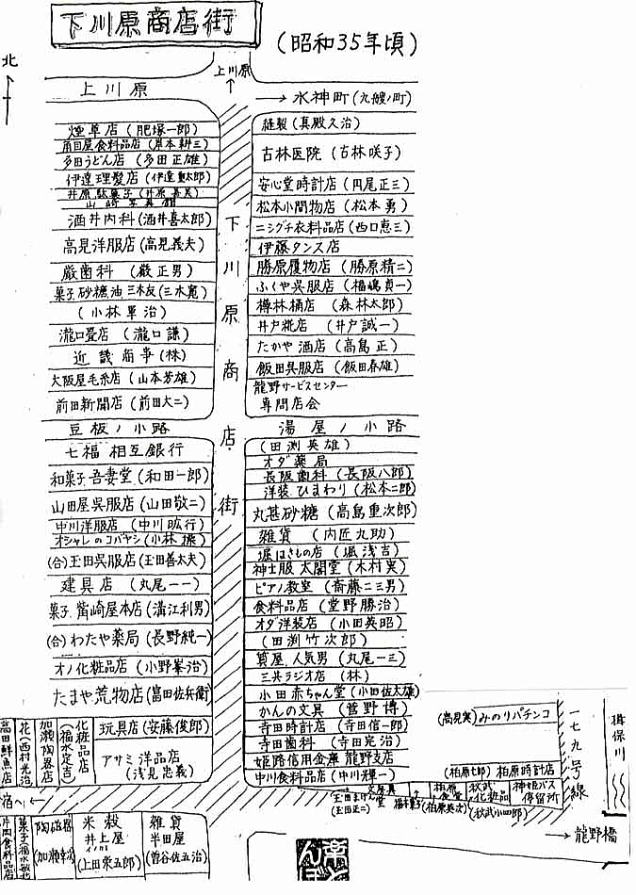 下川原商店街
(昭和35年頃)
北
上川原
上川原
→水神町(九艘ノ町)
煙草店(肥塚一郎)
角目屋食料品店(岸本耕三)
多田うどん店(多田正雄)
伊達理髪店
井原駄菓子
山崎写真館
酒井内科(酒井喜太郎)
高見洋服店(高見義夫)
厳歯科(厳正男)
菓子砂糖油三木友(三木寛)
(小林軍治)
瀧口畳店(瀧口謙)
近畿商事(株)
大阪屋毛糸店(山本芳雄)
前田新聞店(前田大二)
豆板ノ小路
七福相互銀行
和菓子吾妻堂(和田一郎)
山田屋呉服店(山田敬二)
中川洋服店(中川晄行)
オシャレのコバヤシ
(合)玉田呉服店(玉田善太夫)
建具店(丸尾一一)
菓子 觜崎屋本店(溝江利男)
(合)わたや薬局(長野純一)
オノ化粧品店(小野峯治)
たまや荒物店(富田佐兵衛)
玩具店(安藤俊郎)
アサミ洋品店
(浅見忠義)
化粧品店
(福水定吉)
加瀬陶器店
花(西村光治)
高田鮮魚店
下川原商店街
縫製(真殿久治)
古林医院(古林咲子)
安心堂時計店(円尾正三)
松本小間物店(松本勇)
ニシグチ衣料品店(西口恵三)
伊藤タンス店
勝原履物店(勝原精二)
ふくや呉服店(福嶋貞一)
樽林桶店(森林太郎)
井戸糀店(井戸誠一)
たかや酒店(高島正)
飯田呉服店(飯田春雄)
龍野サービスセンター
専門店会
湯屋ノ小路
(田渕英雄)
オダ薬局
長阪歯科(長阪八郎)
洋装ひまわり(松本二郎)
丸甚砂糖(高島重次郎)
雑貨(内匠九助)
堀はきもの店(堀浅吉)
紳士服太閤堂(木村実)
ピアノ教室(斎藤二三男)
食料品店(堂野勝治)
オダ洋装店(小田英昭)
(田渕竹次郎)
質屋人気男(丸尾一三)
三共ラジオ店(林)
小田赤ちゃん堂(小田佐太雄)
かんの文具(菅野博)
寺田時計店(寺田信一郎)
寺田歯科(寺田完治)
姫路信用金庫龍野支店
中川食料品店(中川輝一)
(高見実)みのりパチンコ
(柏原七郎)柏原時計店
神姫バス
停留所
秋武
化粧品
(秋武小四郎)
柏原
食堂
(柏原英次)
文房具
玉田まけん堂
(玉田正二)
一七九号線
揖保川
→龍野橋
宿へ
雑貨
半田屋
(菅谷佐五治)
米穀
井上屋
(上田栄五郎)
陶磁器
片岡食料品店